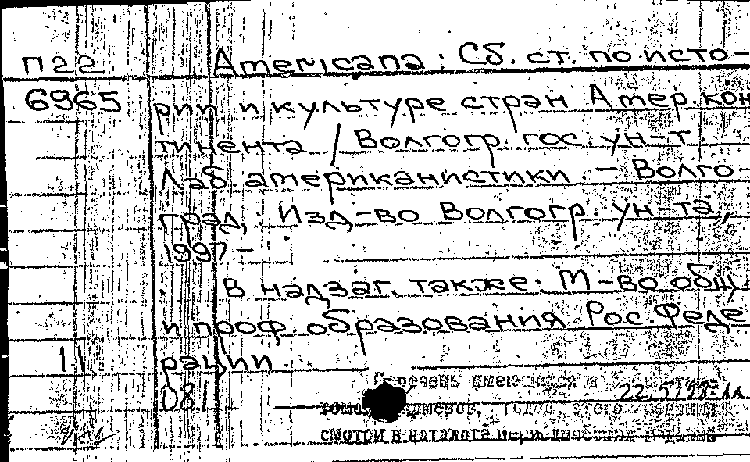 П22 Americana: Сб. ст. по исто-
6965 рии и культуре стран Амер. кон
тинента / Волгогр. гос. ун-т.
Лаб. американистики. - Волго-
град: Изд-во Волгогр. ун-та,
1997-
В надзаг. также: М-во общ.
и проф. образования Рос. Феде
11 рации
081